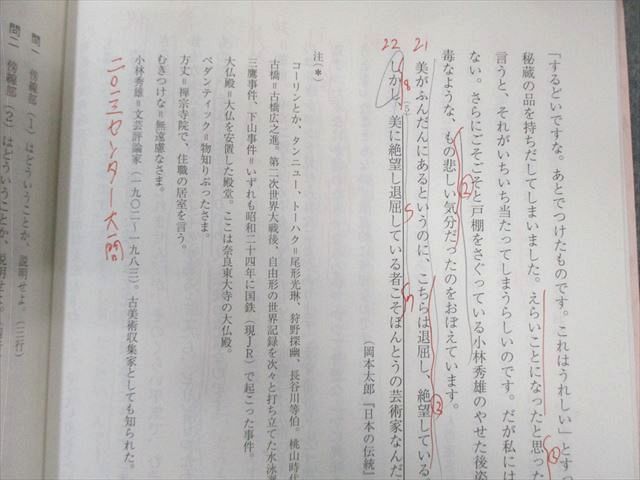 「するどいですな。あとでつけたものです。これはうれしい」とすっ
秘蔵の品を持ちだしてしまいました。えらいことになったと思った
言うと、それがいちいち当たってしまうらしいのです。だが私には
ない。さらにごそごそと戸棚をさぐっている小林秀雄のやせた後姿
毒なような、もの悲しい気分だったのをおぼえています。
21
美がふんだんにあるというのに、こちらは退屈し、絶望している
22
しかし、美に絶望し退屈している者こそほんとうの芸術家なんだ
(5)
(岡本太郎『日本の伝統』
注(*)
コーリンとか、タンニュー、トーハク=尾形光琳、狩野探幽、長谷川等伯。桃山時代
古橋=古橋広之進。第二次世界大戦後、自由形の世界記録を次々と打ち立てた水泳選
三鷹事件、下山事件=いずれも昭和二十四年に国鉄(現JR)で起こった事件。
大仏殿=大仏を安置した殿堂。ここは奈良東大寺の大仏殿。
ペダンティック=物知りぶったさま。
方丈=禅宗寺院で、住職の居室を言う。
むきつけな=無遠慮なさま。
小林秀雄=文芸評論家(一九〇二~一九八三)。古美術収集家としても知られた。
二〇一三センター大一問
問一 傍線部(1)はどういうことか、説明せよ。(三行)
問二 傍線部(2)はどういうことか、説明せよ。